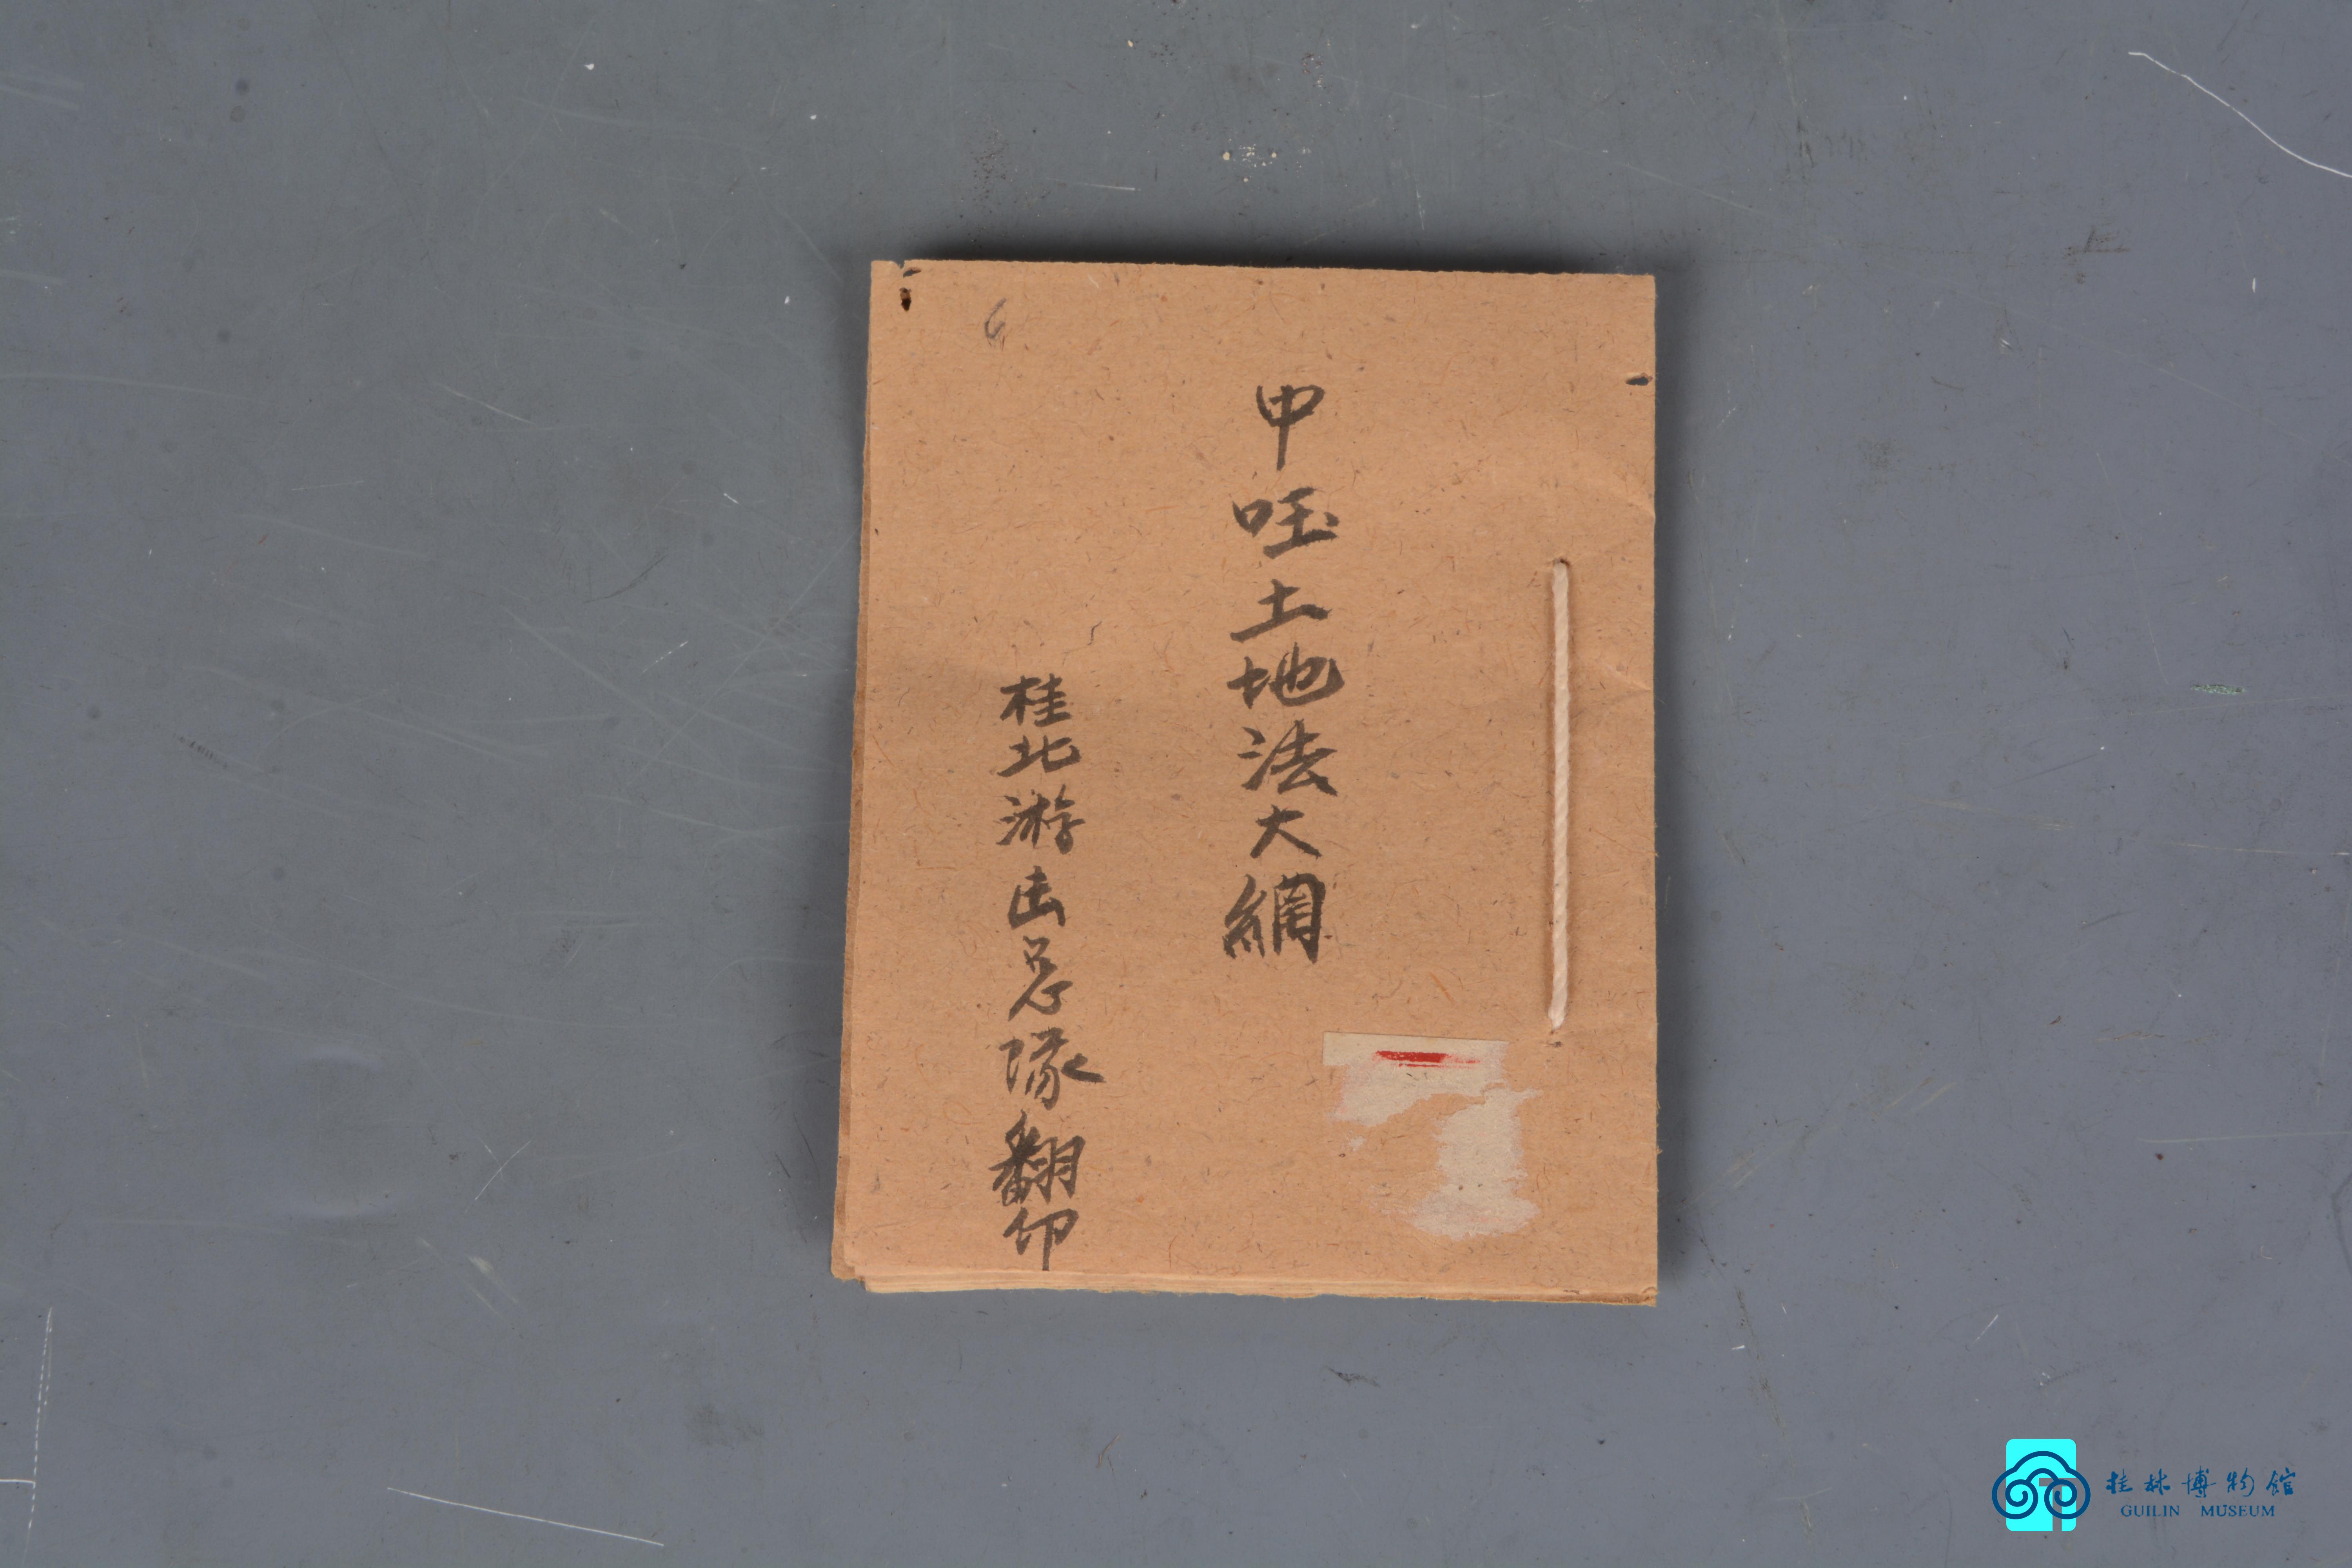 中国土地法大綱
桂北游击总隊翻印
桂林博物馆
GUILIN MUSEUM